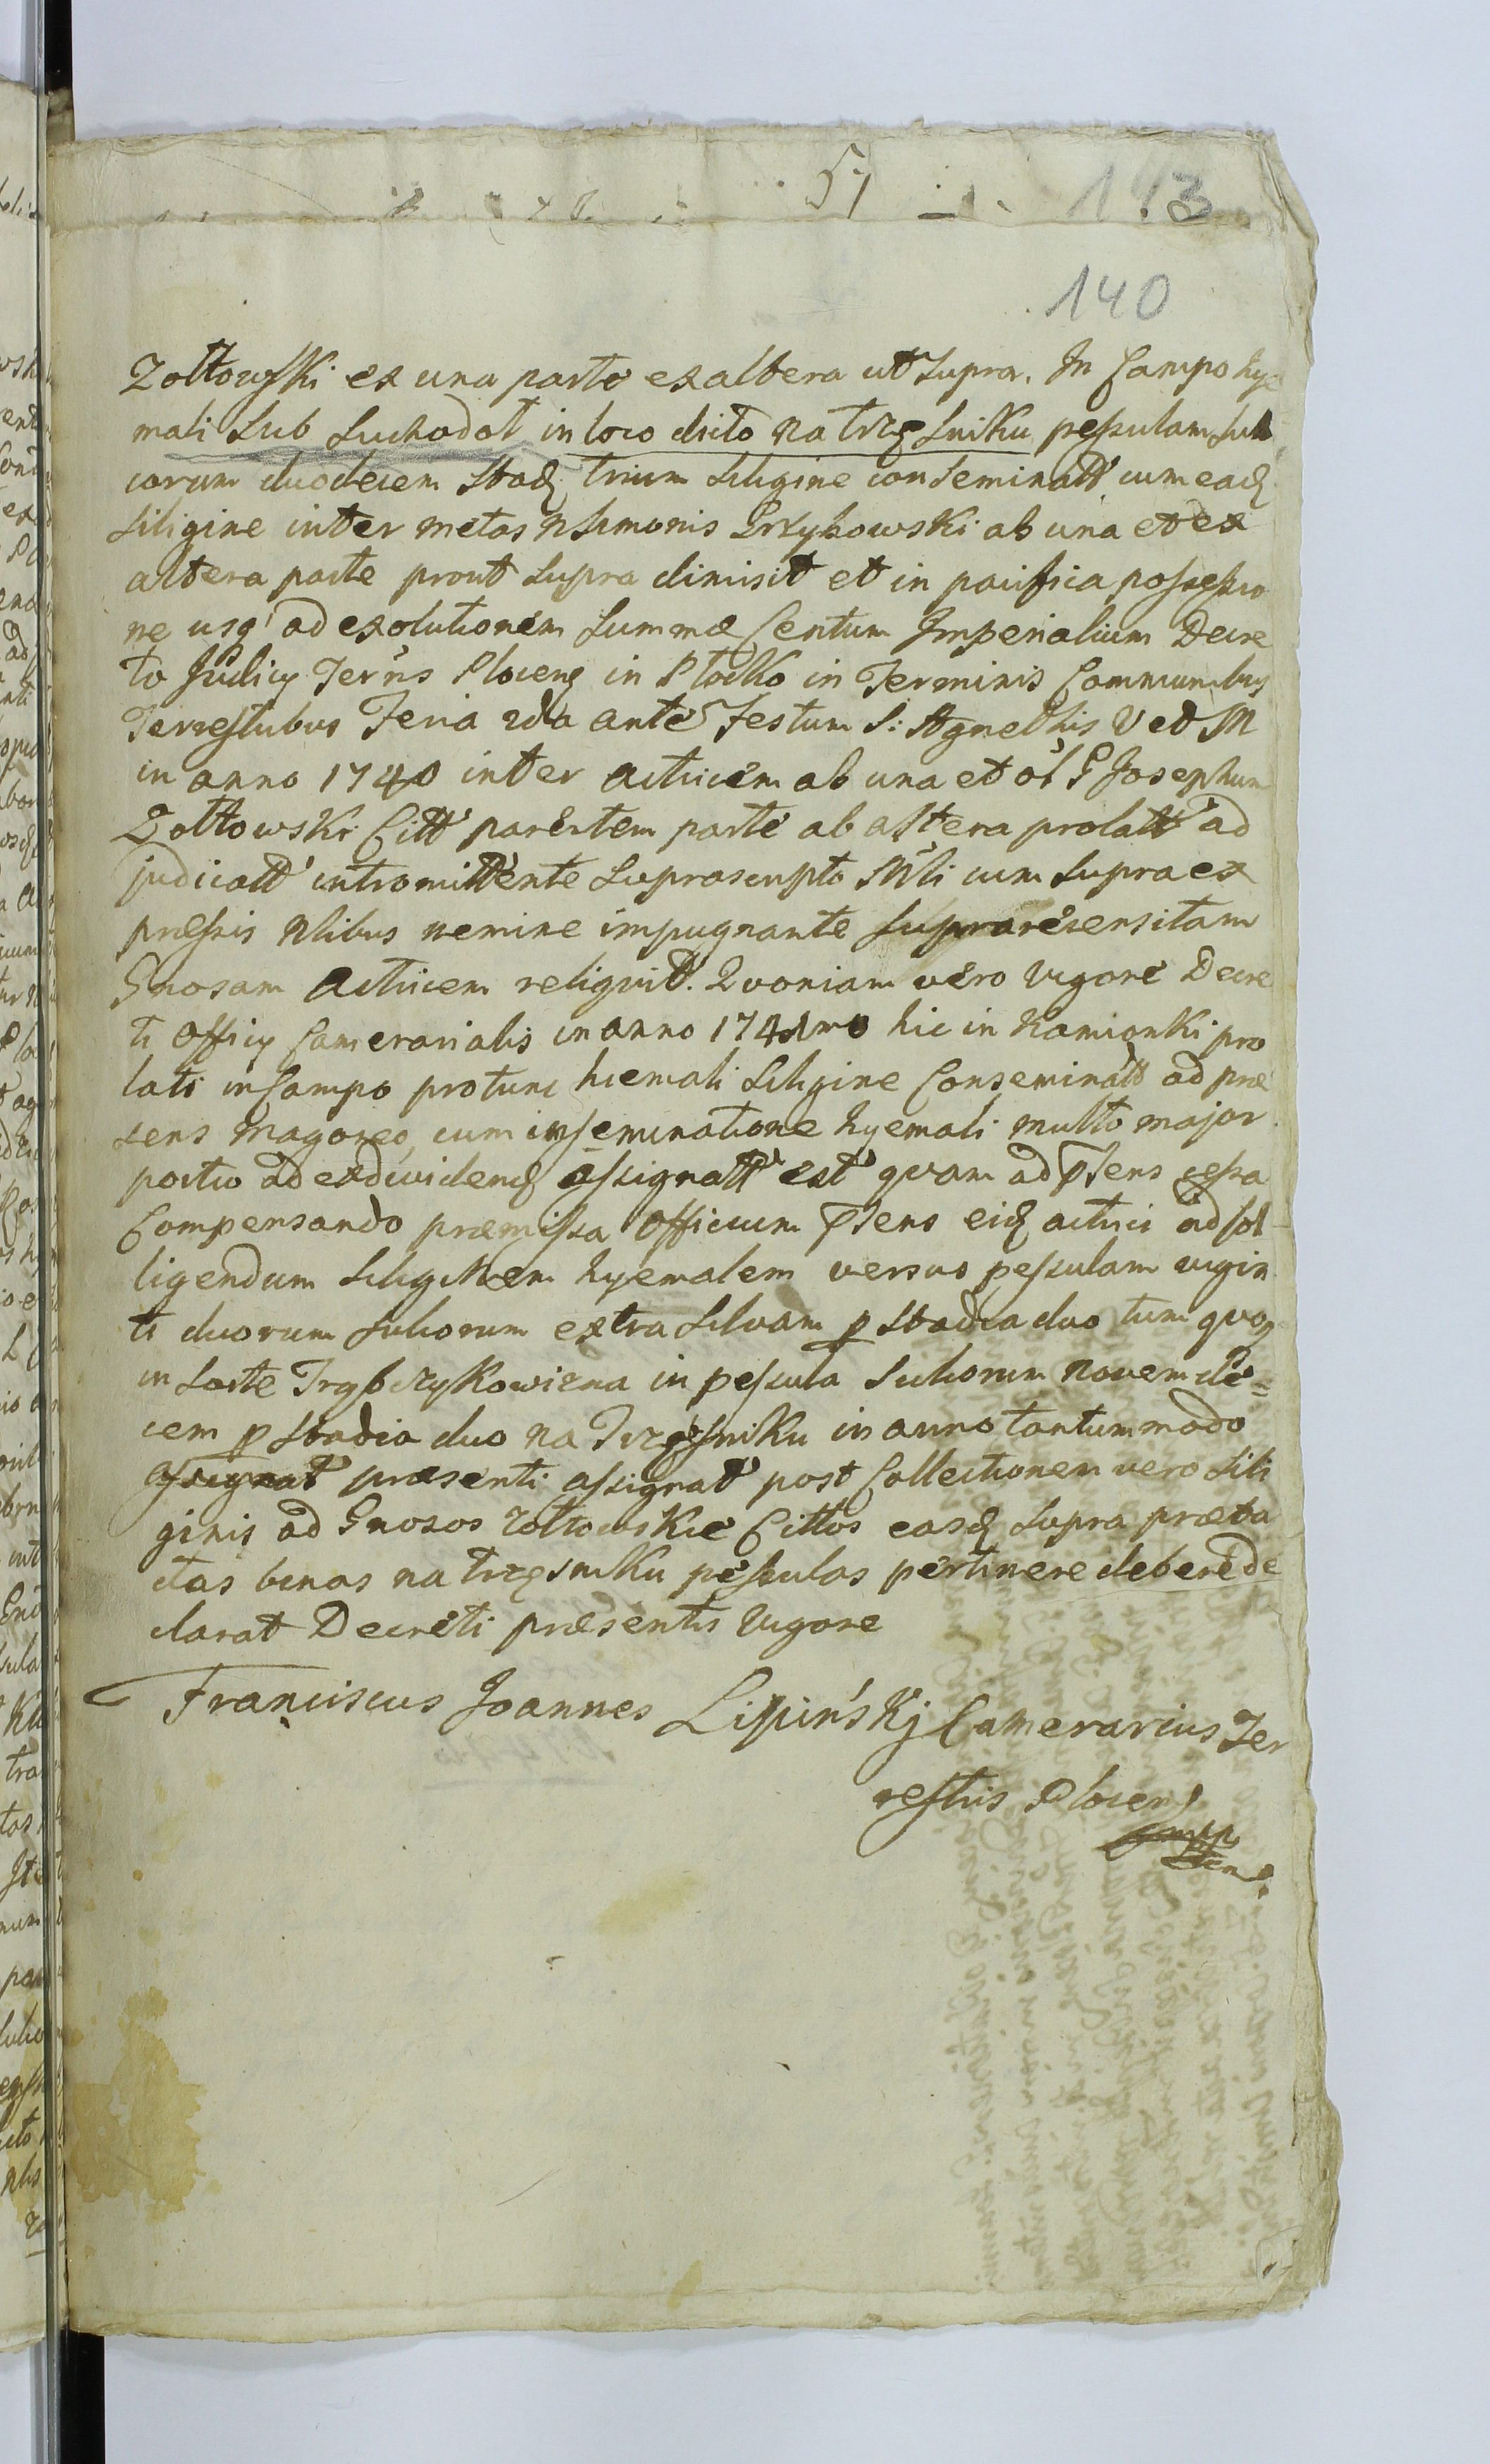 51
143
140
Zołtowski ex una parte ex altera ut supra. In Campo hye
mali sub Suchodoł in loco dicto na trzęsniku peszulam sul
corum duodecem stad. trium siligine conseminatt cum ead.
siligine inter metas N Simonis Grzybowski ab una et ex
altera parte prout supra dimisit et in pacifica possessio
ne usq' ad exolutionem summæ Centum Imperialium Decre
to Judicij Terris Plocens in Płocko in Terminis Communibus
Terrestribus Feria 2da ante Festum S: Agnethis V et M
in anno 1740 inter Actricem ab una et ol G Josephum
Zołtowski Citt parentem parte ab altera prolatt ad
judicatt intromittente suprascripto Mli cum supra ex
pressis Nlibus nemine impugnante suprarecensitam
Gnosam Actricem reliquit. Quoniam vero vigore Decre
ti Officij Camerarialis in anno 1741mo hic in Kamionki pro
lati in Campo protunc hiemali siligine Conseminatt ad præ
sens cum inseminatione hyemali multo major
portio ad exdividend assignatt est quam ad psens cessa
Compensando præmissa Officium psens eid actrici ad sol
ligendum siliginem hyemalem versus peszulam vigin
ti duorum sulcorum extra silvam p stadia duo tum quoq
in sorte in peszula sulcorum novem de=
cem p stadia duo na Trzęsniku in anno tantummodo
assignat præsenti assignat post Collectionem vero sili
ginis ad Gnosos Zołtowskie Cittos easd supra præta
ctas binas na trzęsniku peszulas pertinere debere de
clarat Decreti præsentis vigore
Franciscus Joannes Lipińskj Camerarius Ter
restris Plocen
mpp